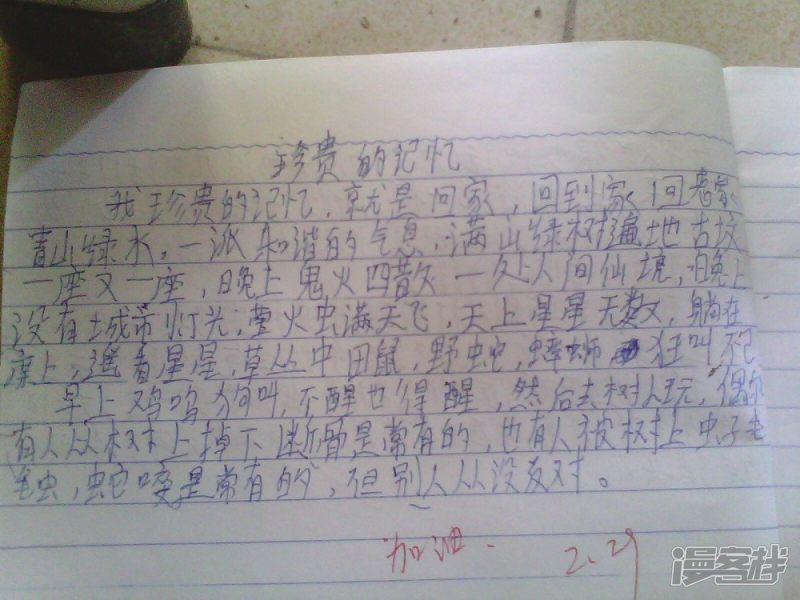 珍贵的记忆
我珍贵的记忆,就是回家,回到家,回老家
青山绿水,一派和谐的气息,满山绿树遍地古坟
一座又一座,晚上鬼火四散 一处人间仙境,晚上
没有城市灯光,萤火虫满天飞,天上星星无数,躺在
床上,遥看星星,草丛中田鼠,野蛇,蟑螂 狂叫不已
早上鸡鸣狗叫,不醒也得醒,然后去树人玩,偶尔
有人从树上掉下断骨是常有的,也有人被树上虫子毛
毛虫,蛇咬是常有的,但别人从没反对。
加油.
2.29
漫客栈